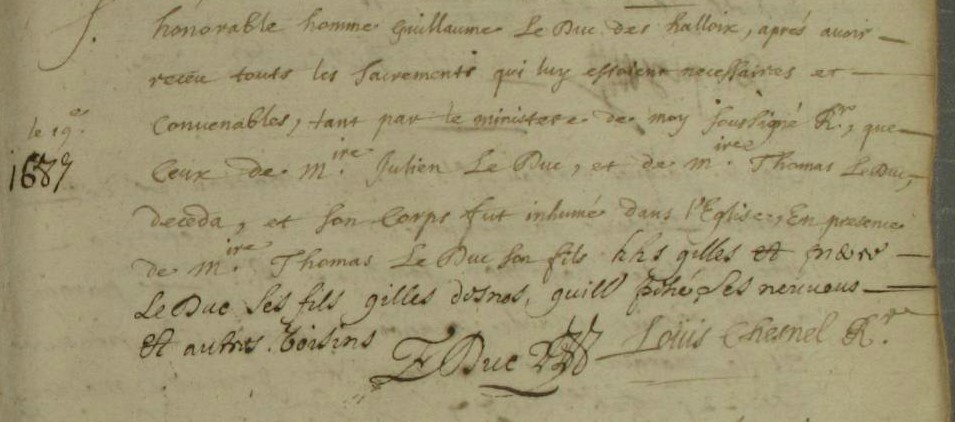 S. honorable homme Guillaume Le Duc des halloix, aprés avoir
receu touts les Sacrements qui luy estoient necessaires et
le 19e. Convenables, tant par le ministere de moy soussigné Rr., que
1687. Ceux de mire. Julien Le Duc, et de mire. Thomas Le Duc,
deceda, et son Corps fut inhumé dans l'Eglise, En presence
de mire. Thomas Le Duc son fils gilles et pierre
Le Duc ses fils gilles desnos, guill ses nerueus
et autres. Voisins
Duc Louis Chesnel Rr.